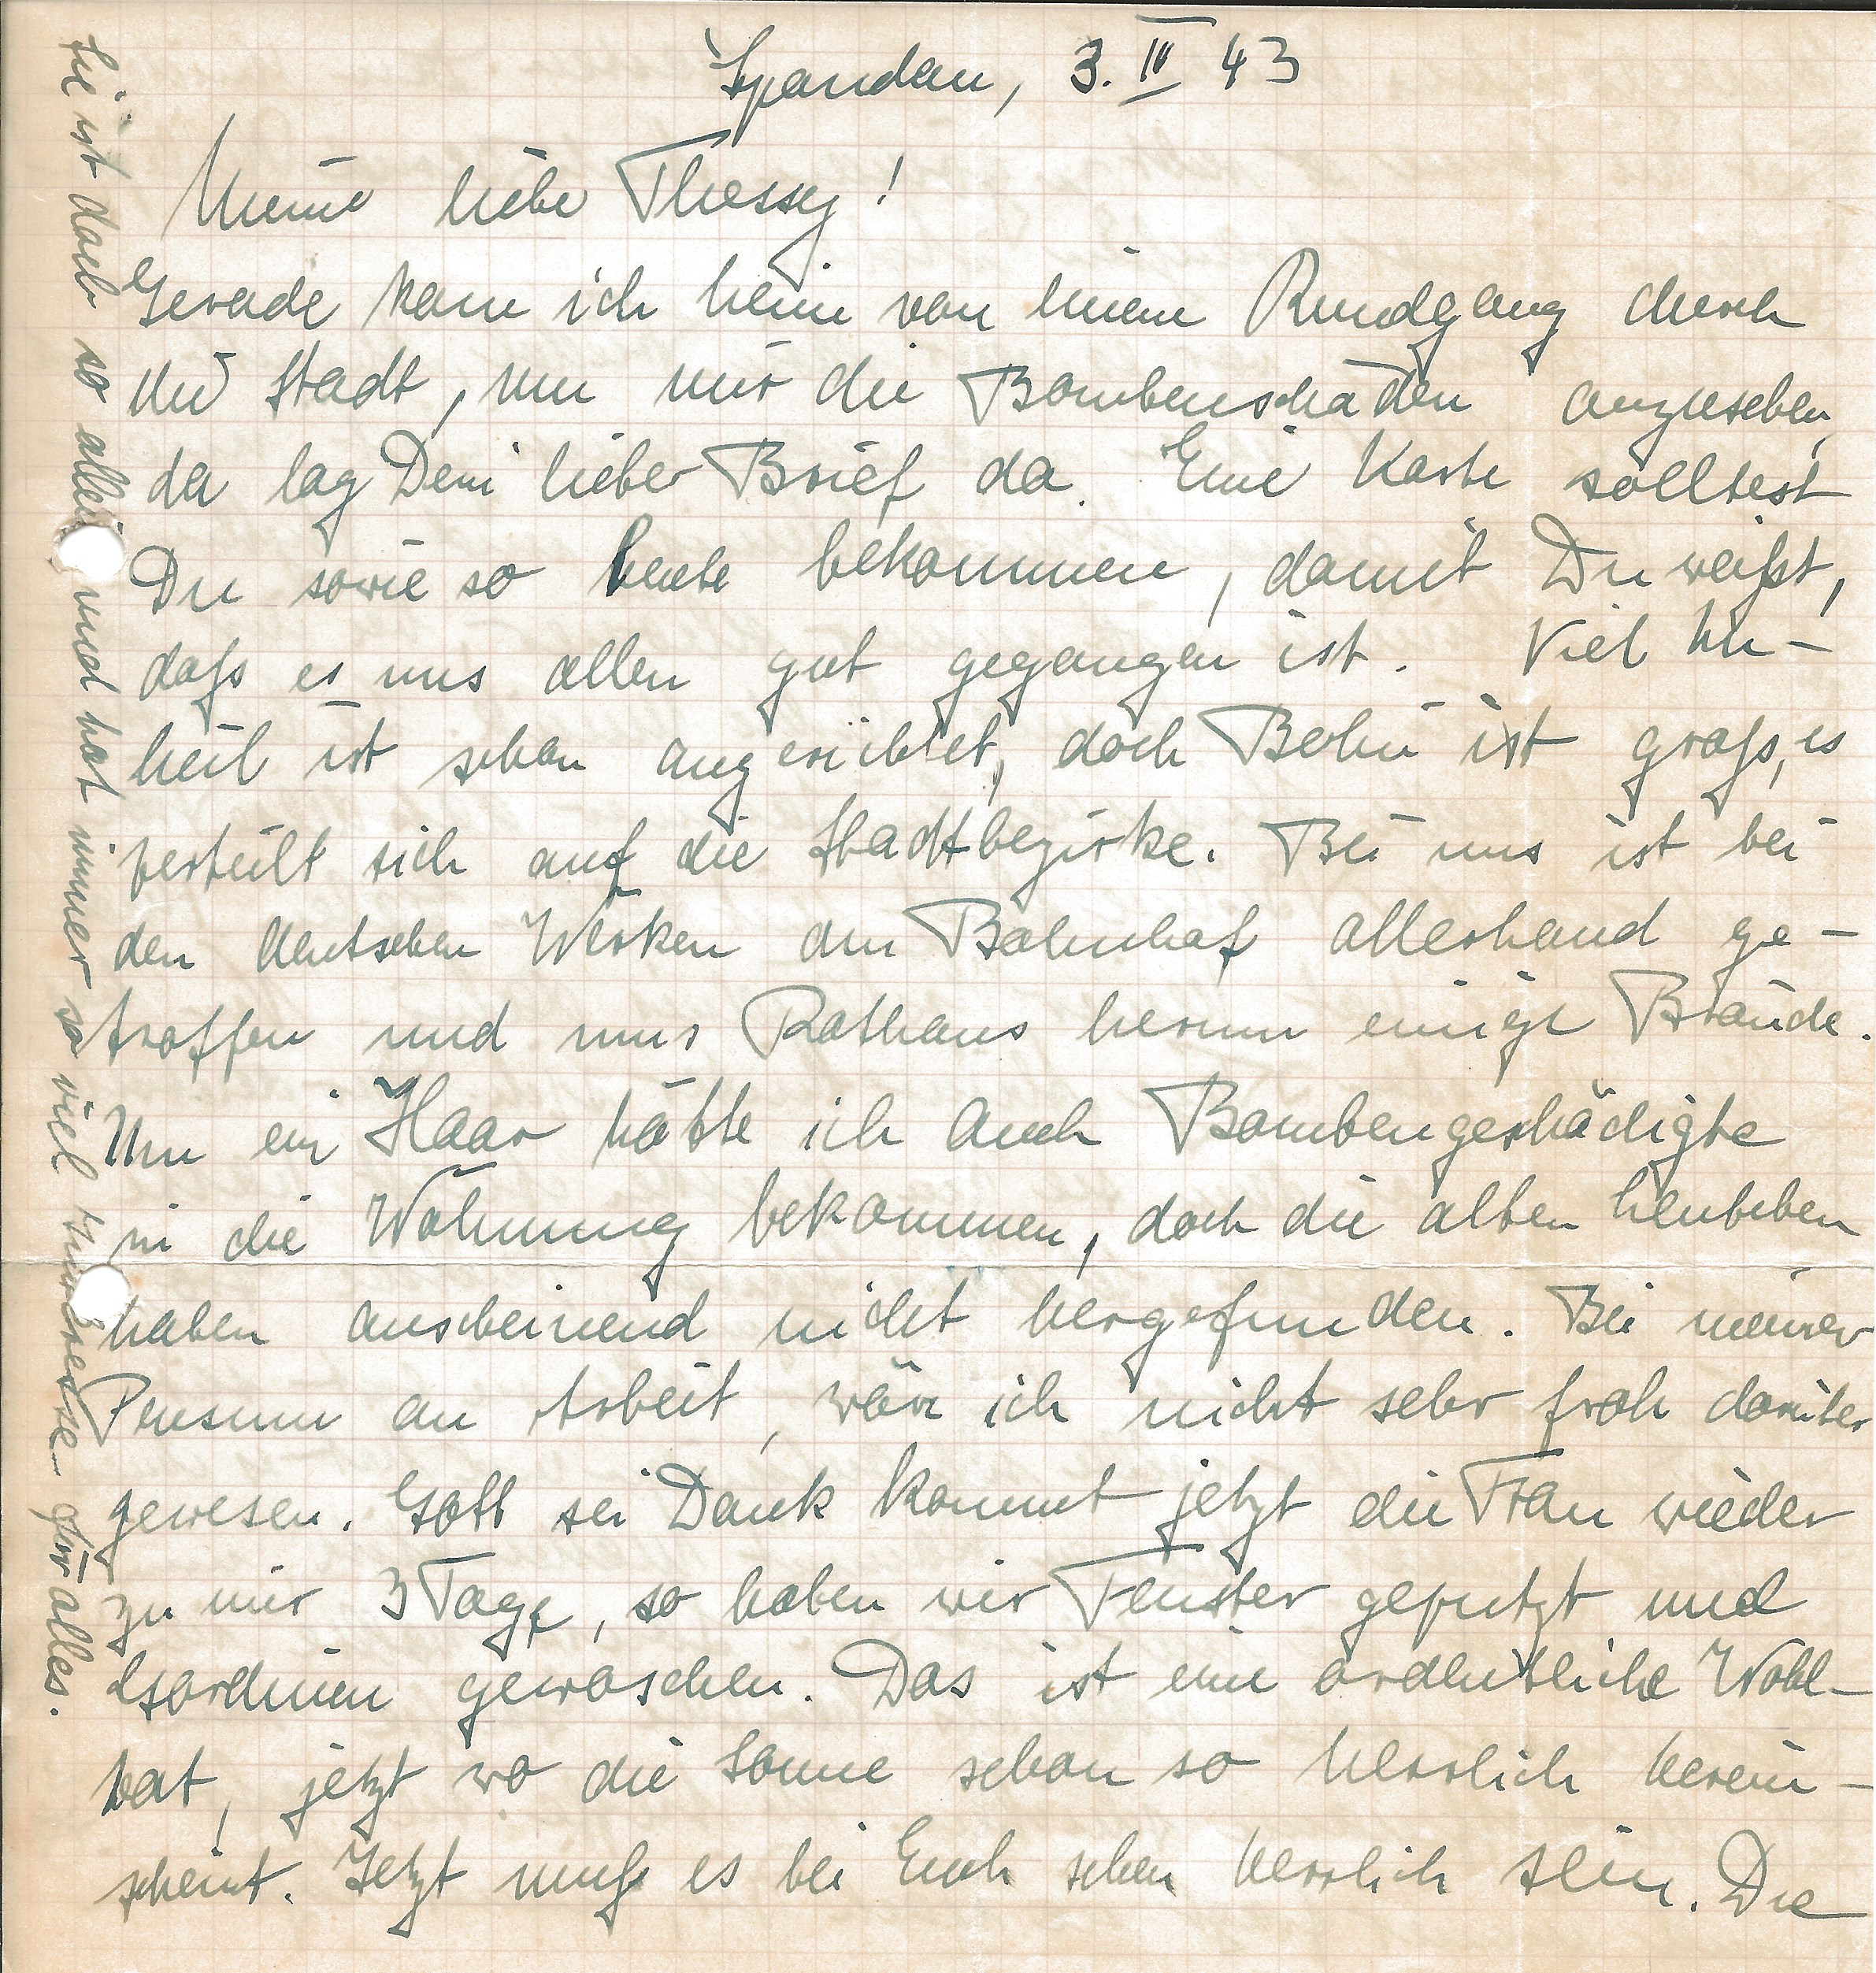 Spandau, 3. III 43
Meine liebe Thessy!
Gerade kam ich heim von einem Rundgang durch
die Stadt, um mir die Bombenschäden anzusehen,
da lag Dein lieber Brief da. Eine Karte solltest
Du sowie so heute bekommen, damit Du weißt,
daß es uns allen gut gegangen ist. Viel Un-
heil ist schon angerichtet, doch Berlin ist groß, es
verteilt sich auf die Stadtbezirke. Bei uns ist bei
den deutschen Werken am Bahnhof allerhand ge-
troffen und ums Rathaus herum einige Brände.
Um ein Haar hätte ich auch Bombengeschädigte
in die Wohnung bekommen, doch die alten Leutchen
haben anscheinend nicht hergefunden. Bei meiner
Pensum an Arbeit, wär ich nicht sehr froh darüber
gewesen. Gott sei Dank kommt jetzt die Frau wieder
zu mir 3 Tage, so haben wir Fenster geputzt und
Gardinen gewaschen. Das ist eine ordentliche Wohl-
tat, jetzt wo die Sonne schon so herrlich herein-
scheint. Jetzt muß es bei Euch schon herrlich sein. Die
Sie ist doch so allein und hat immer so viel Interesse für alles.